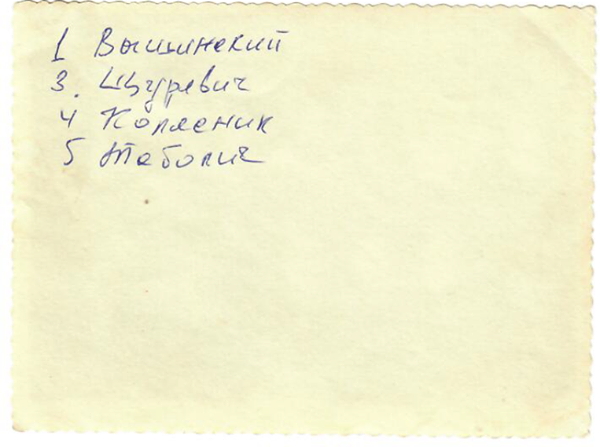 1 Вышинский
3. Щуревич
4 Колесник
5 Таболич